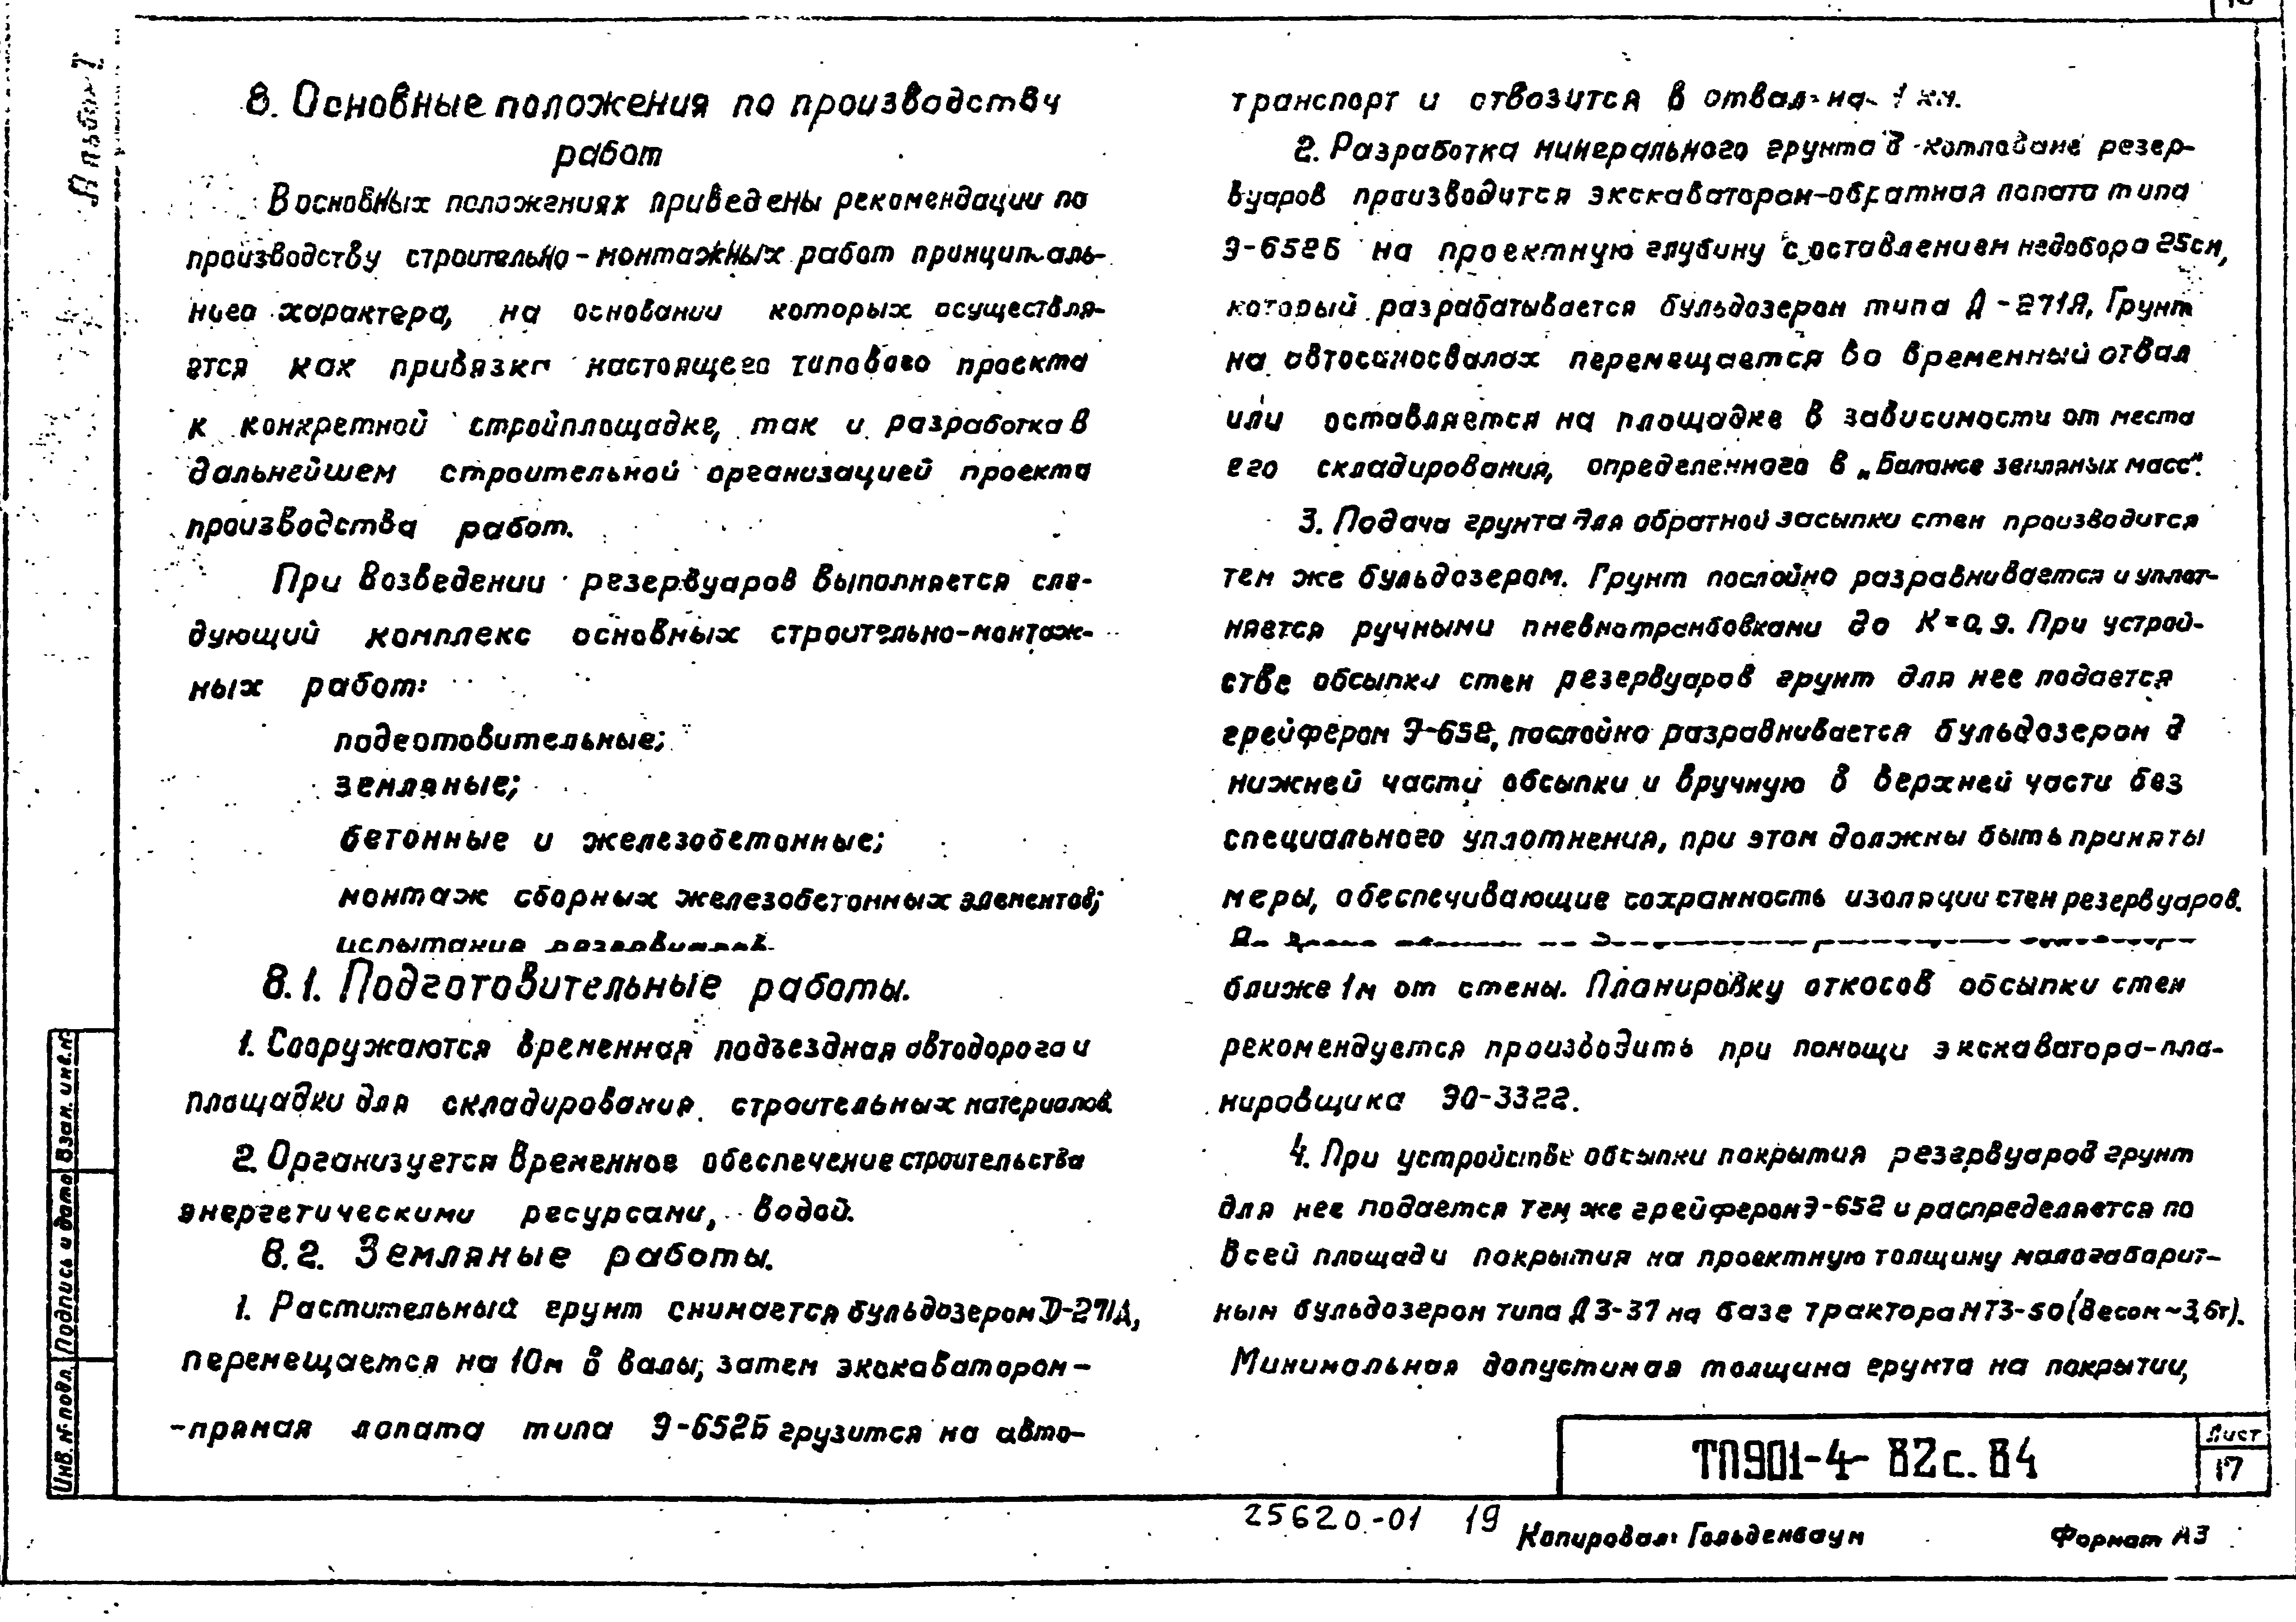 Альбом I
8. Основные положения по производству
работ
В основных положениях приведены рекомендации по
производству строительно-монтажных работ принципиаль-
ного характера, на основании которых осуществля-
ется как привязка настоящего типового проекта
к конкретной стройплощадке, так и разработка в
дальнейшем строительной организацией проекта
производства работ.
При возведении резервуаров выполняется сле-
дующий комплекс основных строительно-монтаж-
ных работ:
подготовительные;
земляные;
бетонные и железобетонные;
монтаж сборных железобетонных элементов;
испытание
8.1. Подготовительные работы.
1. Сооружаются временная подъездная автодорога и
площадки для складирования строительных материалов.
2. Организуется временное обеспечение строительства
энергетическими ресурсами, водой.
8.2. Земляные работы.
1. Растительный грунт снимается бульдозером Д-271А,
перемещается на 10м в валы, затем экскаватором-
-прямая лопата типа Э-652Б грузится на авто-
транспорт и отвозится в отвал на 1 км.
2. Разработка минерального грунта в котловане резер-
вуаров производится экскаватором-обратная лопата типа
Э-652Б на проектную глубину с оставлением недобора 25см,
который разрабатывается бульдозером типа Д-271А, Грунт
на автосамосвалах перемещается во временный отвал
или оставляется на площадке в зависимости от места
его складирования, определенного в „Балансе земляных масс".
3. Подача грунта для обратной засыпки стен производится
тем же бульдозером. Грунт послойно разравнивается и уплот-
няется ручными пневмотрамбовками до К=0,9. При устрой-
стве обсыпки стен резервуаров грунт для нее подается
грейфером Э-652, послойно разравнивается бульдозером в
нижней части обсыпки и вручную в верхней части без
специального уплотнения, при этом должны быть приняты
меры, обеспечивающие сохранность изоляции стен резервуаров.
ближе 1м от стены. Планировку откосов обсыпки стен
рекомендуется производить при помощи экскаватора-пла-
нировщика ЭО-3322.
4. При устройстве обсыпки покрытия резервуаров грунт
для нее подается тем же грейфером Э-652 и распределяется по
всей площади покрытия на проектную толщину малогабарит-
ным бульдозером типа ДЗ-37 на базе трактора МТЗ-50 (весом ~3,6т).
Минимальная допустимая толщина грунта на покрытии,
Взам. инв.№
Подпись и дата
Инв.№ подл.
ТП901-4-82с.84
Лист
17
25620-01 19
Копировал: Гольденбаум
Формат А3